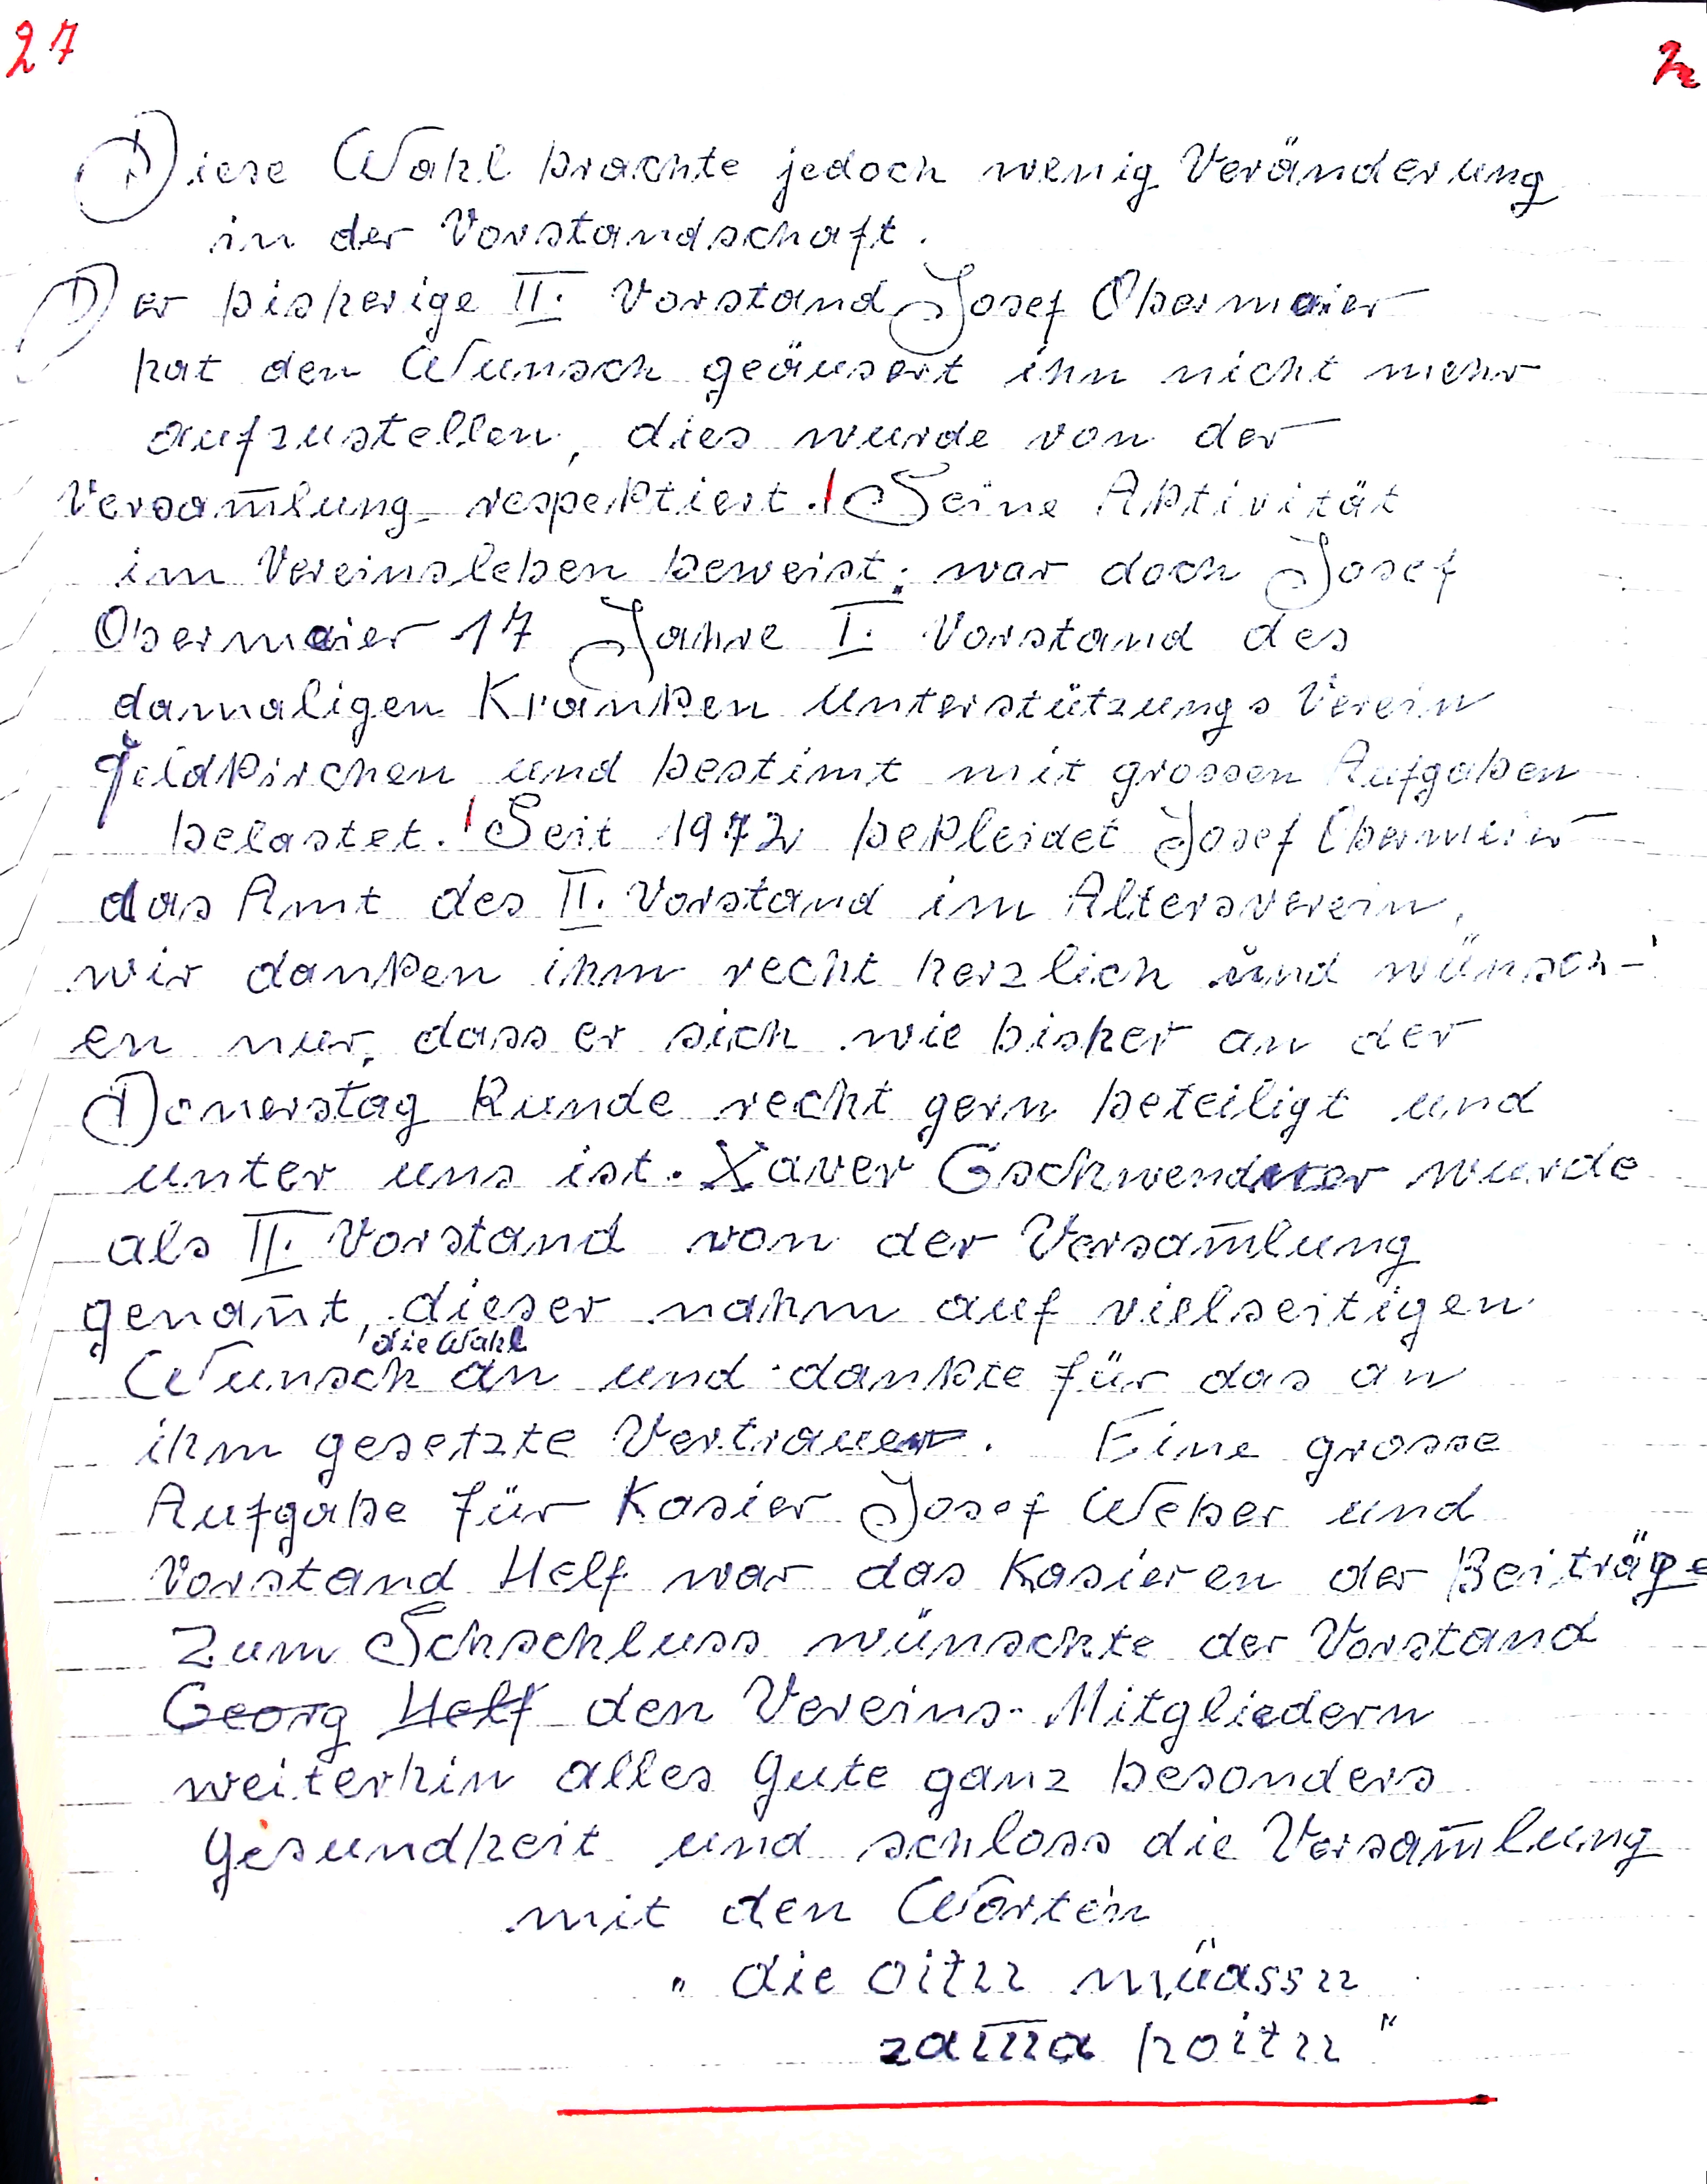 27
Diese Wahl brachte jedoch wenig Veränderung
in der Vorstandschaft.
Der bisherige II. Vorstand Josef Obermaier
hat den Wunsch geäusert ihn nicht mehr
aufzustellen, dies wurde von der
Versam̅lung respektiert. Seine Aktivität
im Vereinsleben beweist, war doch Josef
Obermaier 17 Jahre I. Vorstand des
damaligen Kranken Unterstützungs Verein
Feldkirchen und bestimt mit grossen Aufgaben
belastet. Seit 1972 bekleidet Josef Obermeier
das Amt des II. Vorstand im Altersverein,
wir danken ihm recht herzlich und wünsch-
en nur, dass er sich wie bisher an der
Donerstag Runde recht gern beteiligt und
unter uns ist. Xaver Gschwendner wurde
als II. Vorstand von der Versam̅lung
genan̅t, dieser nahm auf vielseitigen
die Wahl
Wunsch an und dankte für das an
ihm gesetzte Vertrauen. Eine grosse
Aufgabe für Kasier Josef Weber und
Vorstand Helf war das Kasieren der Beiträge
Zum Schschluss wünschte der Vorstand
Georg Helf den Vereins-Mitgliedern
weiterhin alles Gute ganz besonders
Gesundheit und schloss die Versam̅lung
mit den Worten
„ die oitn müassn
zam̅a hoitn "